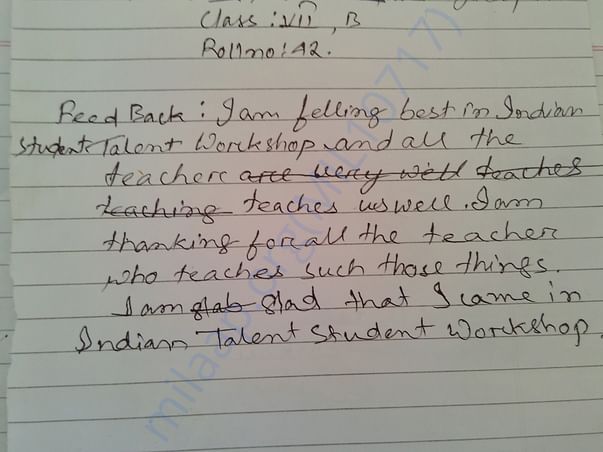 Class : VII , B
Roll no : 42.
Feed Back : I am felling best in Indian
Student Talent Workshop and all the
teacher are very well teaches
teaching teaches us well. I am
thanking for all the teacher
who teaches such those things.
I am glab glad that I came in
Indian Talent Student Workshop.
milaap.org(MIL19717)